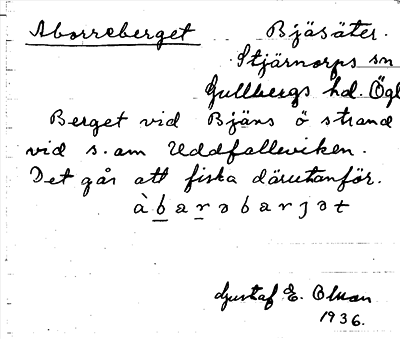 Aborreberget Bjäsäter.
Stjärnorps sn
Gullbergs hd. Ögl
Berget vid Bjäns ö strand
vid s. om Uddfalleviken.
Det går att fiska därutanför.
àbarəbarjət
Gustaf E. Olson
1936.